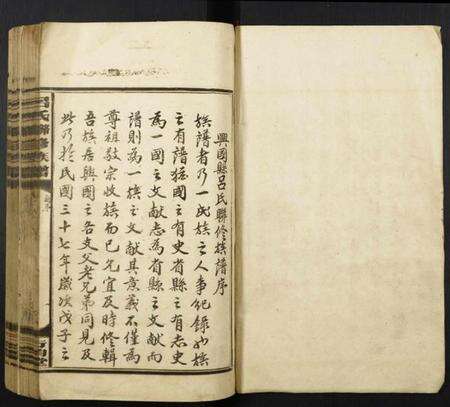 興國縣呂氏聯修族譜序
族譜者乃一氏族之人事紀錄也族
之有譜猶國之有史省縣之有志史
為一國之文献志為省縣之文献而
譜則為一族之文献其意義不僅為
尊祖敬宗收族而已允宜及時修輯
吾族居興國之各文父老兄弟同見及
此乃於民國三十七年歲次戊子之
呂氏聯修族譜